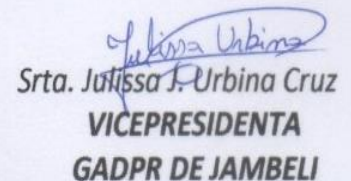 Julissa Urbina
Srta. Julissa J. Urbina Cruz
VICEPRESIDENTA
GADPR DE JAMBELI